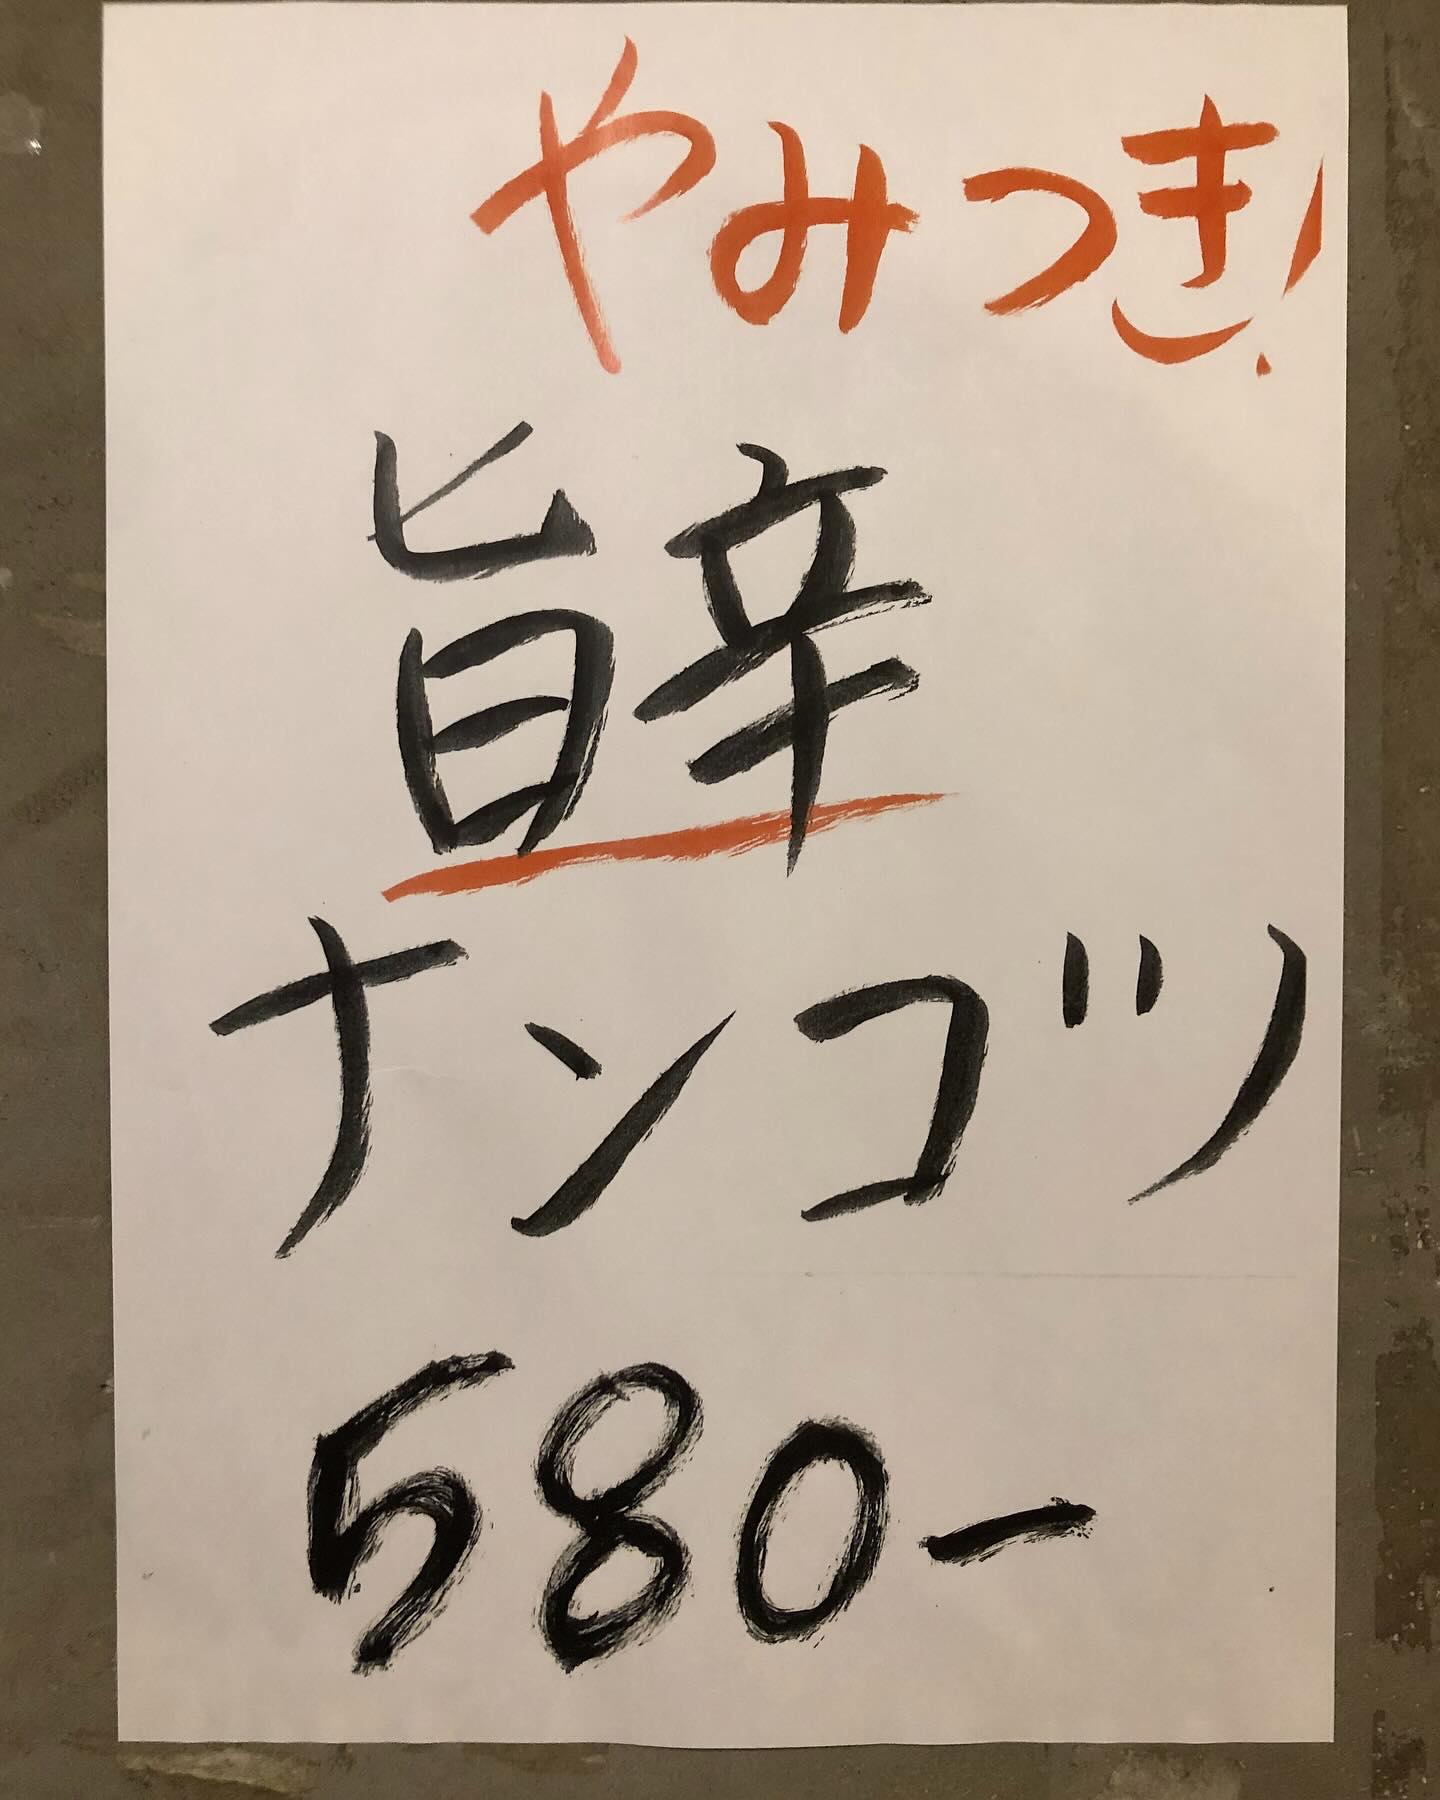 やみつき!
旨辛
ナンコツ
580-